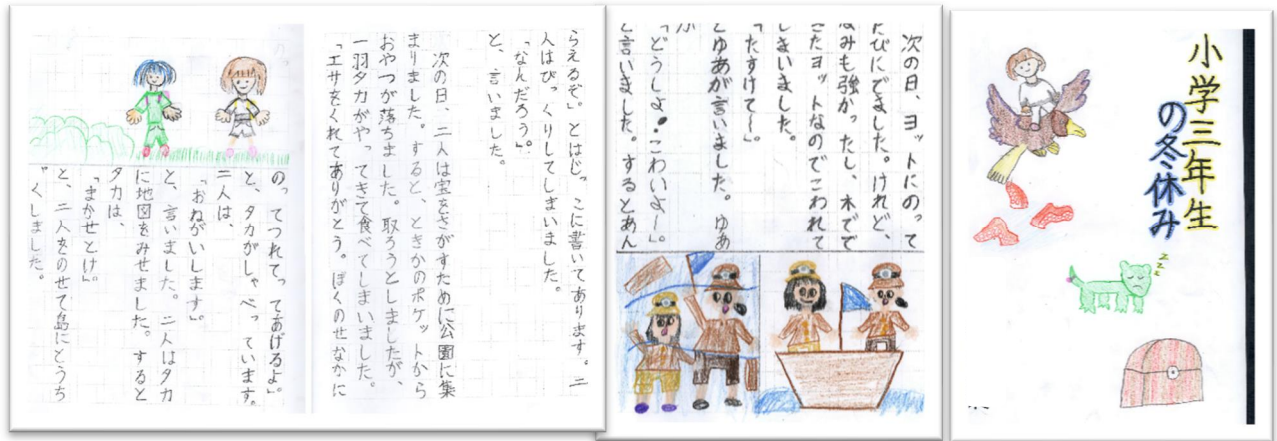 小学三年生
の冬休み
zzz
次の日、ヨットにのって
たびにでました。けれど、
なみも強かったし、木でで
きたヨットなのでこわれて
しまいました。
「たすけて〜」
とゆあが言いました。ゆあ
が
「どうしよ・こわいよ〜」。
と言いました。するとあん
らえるぞ」。とはじっこに書いてあります。二
人はびっくりしてしまいました。
「なんだろう」。
と、言いました。
次の日、二人は宝をさがすために公園に集
まりました。すると、ときかのポケットから
おやつが落ちました。取ろうとしましたが、
一羽タカがやってきて食べてしまいました。
「エサをくれてありがとう。ぼくのせなかに
のってつれてってあげるよ」。
と、タカがしゃべっています。
二人は、
「おねがいします」
と、言いました。二人はタカ
に地図をみせました。すると
タカは、
「まかせとけ」。
と、二人をのせて島にとうち
ゃくしました。